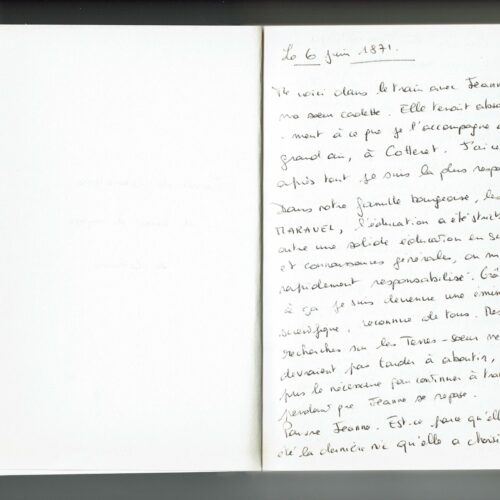 Le 6 juin 1871.
Me voici dans le train avec Jeanne
ma sœur cadette. Elle tenait abso
-ment à ce que je l'accompagne
grand an, à Cotteret. J'ai
après tout je suis la plus respo
Dans notre famille bourgeoise, les
MARAVEL, l'éducation a été strict
outre une solide éducation en sc
et connaissances générales, on m
rapidement responsabilisé. Grâ
à ça je suis devenue une émin
scientifique, reconnue de tous. Mes
recherches sur les Terres-sœur ne
devraient pas tarder à aboutir,
pris le nécessaire pour continuer à tra
pendant que Jeanne se repose.
Pauvre Jeanne. Est-ce parce qu'ell
été la dernière née qu'elle a choisi